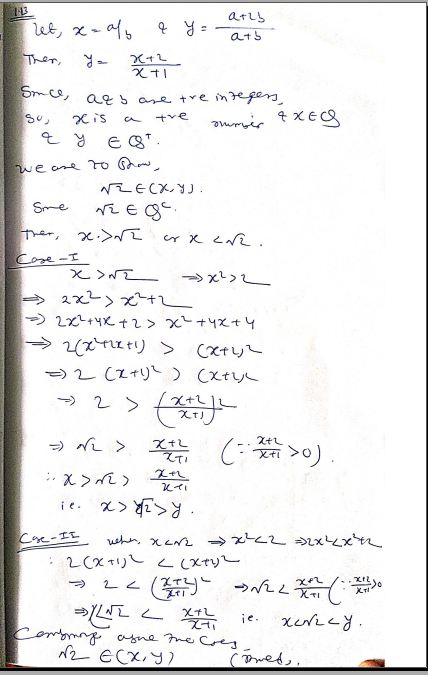 1.13
Let, x = a/b & y = (a+2b)/(a+b)
Then, y = (x+2)/(x+1)
Since, a & b are +ve integers,
so, x is a +ve number & x ∈ Q
& y ∈ Q⁺.
We are to Prove,
√2 ∈ (x, y).
Since √2 ∈ Qᶜ.
Then, x > √2 or x < √2.
Case-I
x > √2 ⇒ x² > 2
⇒ 2x² > x²+2
⇒ 2x²+4x+2 > x²+4x+4
⇒ 2(x²+2x+1) > (x+2)²
⇒ 2(x+1)² > (x+2)²
⇒ 2 > ((x+2)/(x+1))²
⇒ √2 > (x+2)/(x+1) (∵ (x+2)/(x+1) > 0).
∴ x > √2 > (x+2)/(x+1)
i.e. x > √2 > y.
Case-II when x < √2 ⇒ x² < 2 ⇒ 2x² < x²+2
∴ 2(x+1)² < (x+2)²
⇒ 2 < ((x+2)/(x+1))² ⇒ √2 < (x+2)/(x+1) (∵ (x+2)/(x+1) > 0
⇒ x < √2 < (x+2)/(x+1) i.e. x < √2 < y.
Combining above two Cases
√2 ∈ (x, y)